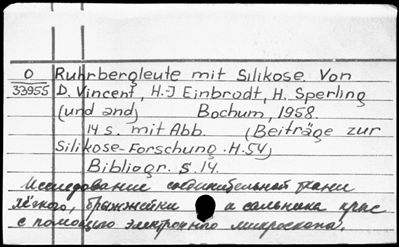 O Ruhrbergleute mit Silikose. Von
33955 D. Vincent, H.-J Einbrodt, H. Sperling
(und and) Bochum, 1958.
14 s. mit Abb. (Beiträge zur
Silikose-Forschung. H. 54)
Bibliogr. S. 14.
Исследование соединительной ткани
лёгкого, брыжжейки и сальника крыс
с помощью электронного микроскопа.